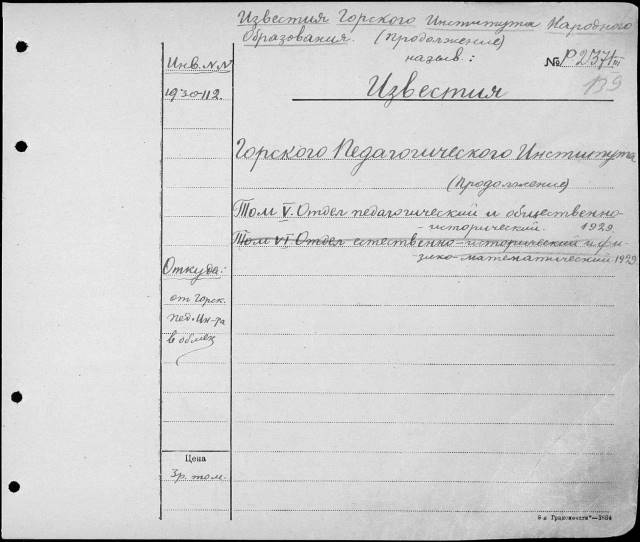 Известия Горского Института Народного
Образования. (продолжение)
назыв.:
Инв. №№
№ Р 2/371 III
139
1930-112.
Известия
Горского Педагогического Института
(продолжение)
Том V. Отдел педагогический и общественно-
-исторический. 1929.
Том VI Отдел естественно-исторический и фи-
зико-математический 1929
Откуда:
от Горск.
пед. Ин-та
в обмен
Цена
3 р. том.